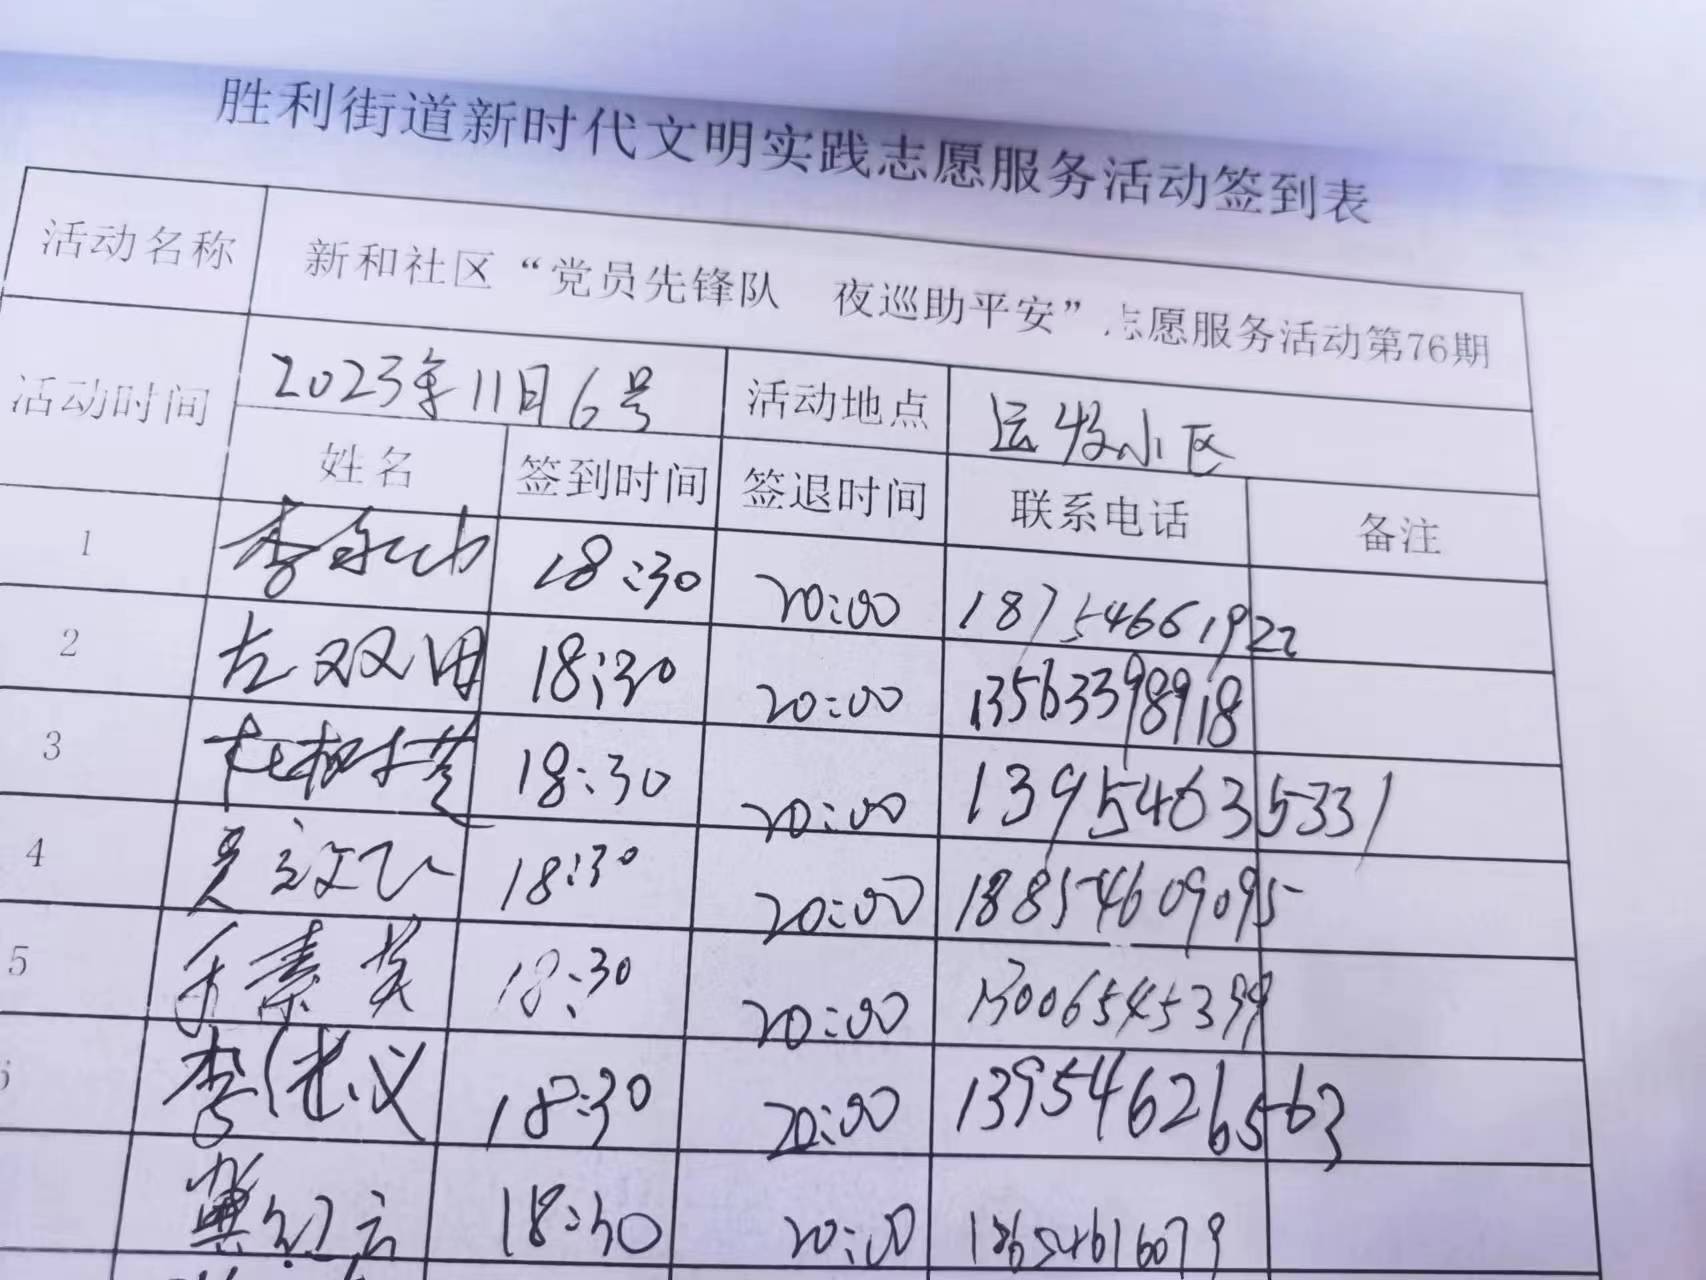 胜利街道新时代文明实践志愿服务活动签到表
活动名称 新和社区“党员先锋队 夜巡助平安”志愿服务活动第76期
活动时间 2023年11月6号 活动地点 运牧小区
姓名 签到时间 签退时间 联系电话 备注
1 18:30 20:00 18754661922
2 左双田 18:30 20:00 13563398918
3 杜树芝 18:30 20:00 13954635331
4 18:30 20:00 18854609095
5 素英 18:30 20:00 13006545399
6 李佬义 18:30 20:00 13954626563
18:30 20:00 18654616079